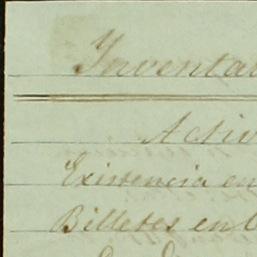 Inventa
Activ
Existencia en
Billetes en